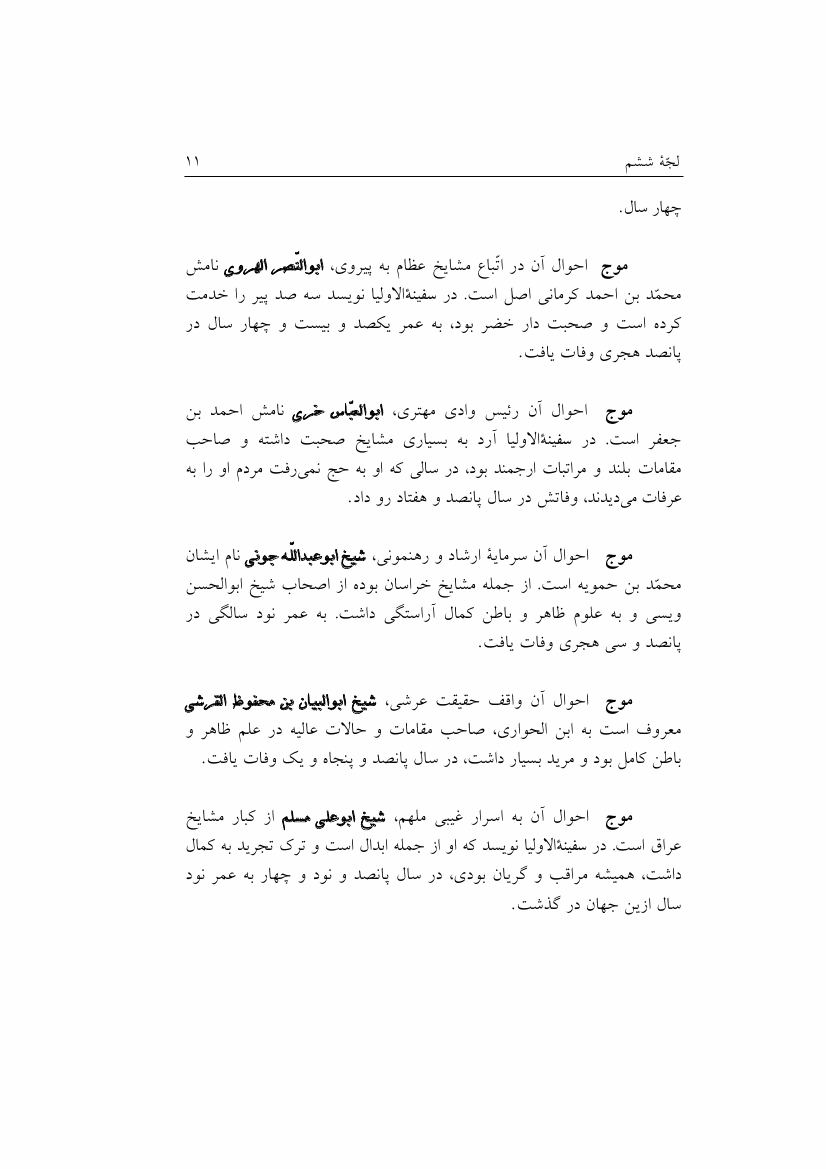 لجّهٔ ششم ۱۱
چهار سال.
موج احوال آن در اتّباع مشایخ عظام به پیروی، ابوالنّصر الهروی نامش
محمّد بن احمد کرمانی اصل است. در سفینةالاولیا نویسد سه صد پیر را خدمت
کرده است و صحبت دار خضر بود، به عمر یکصد و بیست و چهار سال در
پانصد هجری وفات یافت.
موج احوال آن رئیس وادی مهتری، ابوالعبّاس نامش احمد بن
جعفر است. در سفینةالاولیا آرد به بسیاری مشایخ صحبت داشته و صاحب
مقامات بلند و مراتبات ارجمند بود، در سالی که او به حج نمی‌رفت مردم او را به
عرفات می‌دیدند، وفاتش در سال پانصد و هفتاد رو داد.
موج احوال آن سرمایهٔ ارشاد و رهنمونی، شیخ ابوعبداللّه جونی نام ایشان
محمّد بن حمویه است. از جمله مشایخ خراسان بوده از اصحاب شیخ ابوالحسن
ویسی و به علوم ظاهر و باطن کمال آراستگی داشت. به عمر نود سالگی در
پانصد و سی هجری وفات یافت.
موج احوال آن واقف حقیقت عرشی، شیخ ابوالبیان بن محفوظ القرشی
معروف است به ابن الحواری، صاحب مقامات و حالات عالیه در علم ظاهر و
باطن کامل بود و مرید بسیار داشت، در سال پانصد و پنجاه و یک وفات یافت.
موج احوال آن به اسرار غیبی ملهم، شیخ ابوعلی مسلم از کبار مشایخ
عراق است. در سفینةالاولیا نویسد که او از جمله ابدال است و ترک تجرید به کمال
داشت، همیشه مراقب و گریان بودی، در سال پانصد و نود و چهار به عمر نود
سال ازین جهان در گذشت.